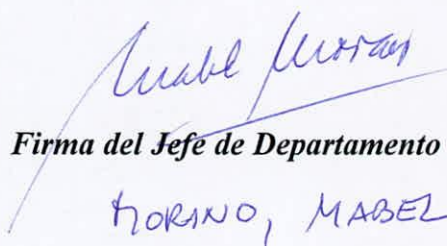 Mabel Morano
Firma del Jefe de Departamento
MORANO, MABEL